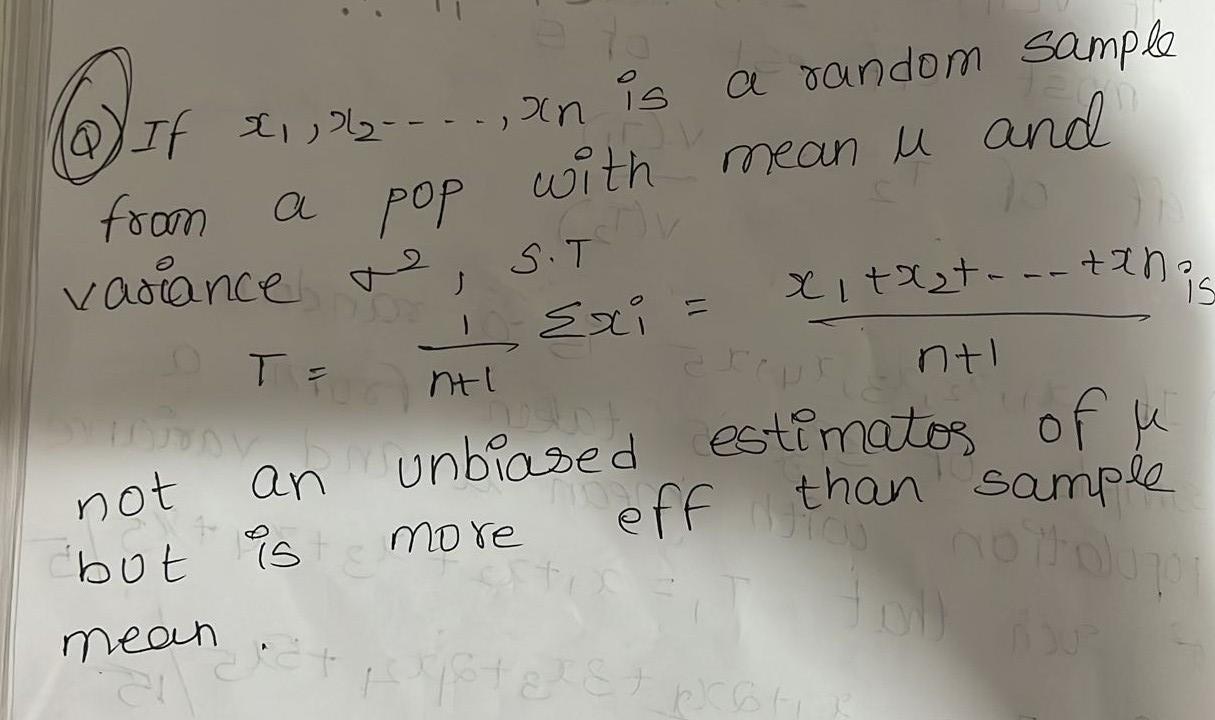 Q) If x₁, x₂-----, xn is a random sample
from a pop with mean μ and
variance σ², S.T
T = 1/(n+1) Σxi = (x₁+x₂+----+xn)/(n+1) is
not an unbiased estimator of μ
but is more eff than sample
mean.